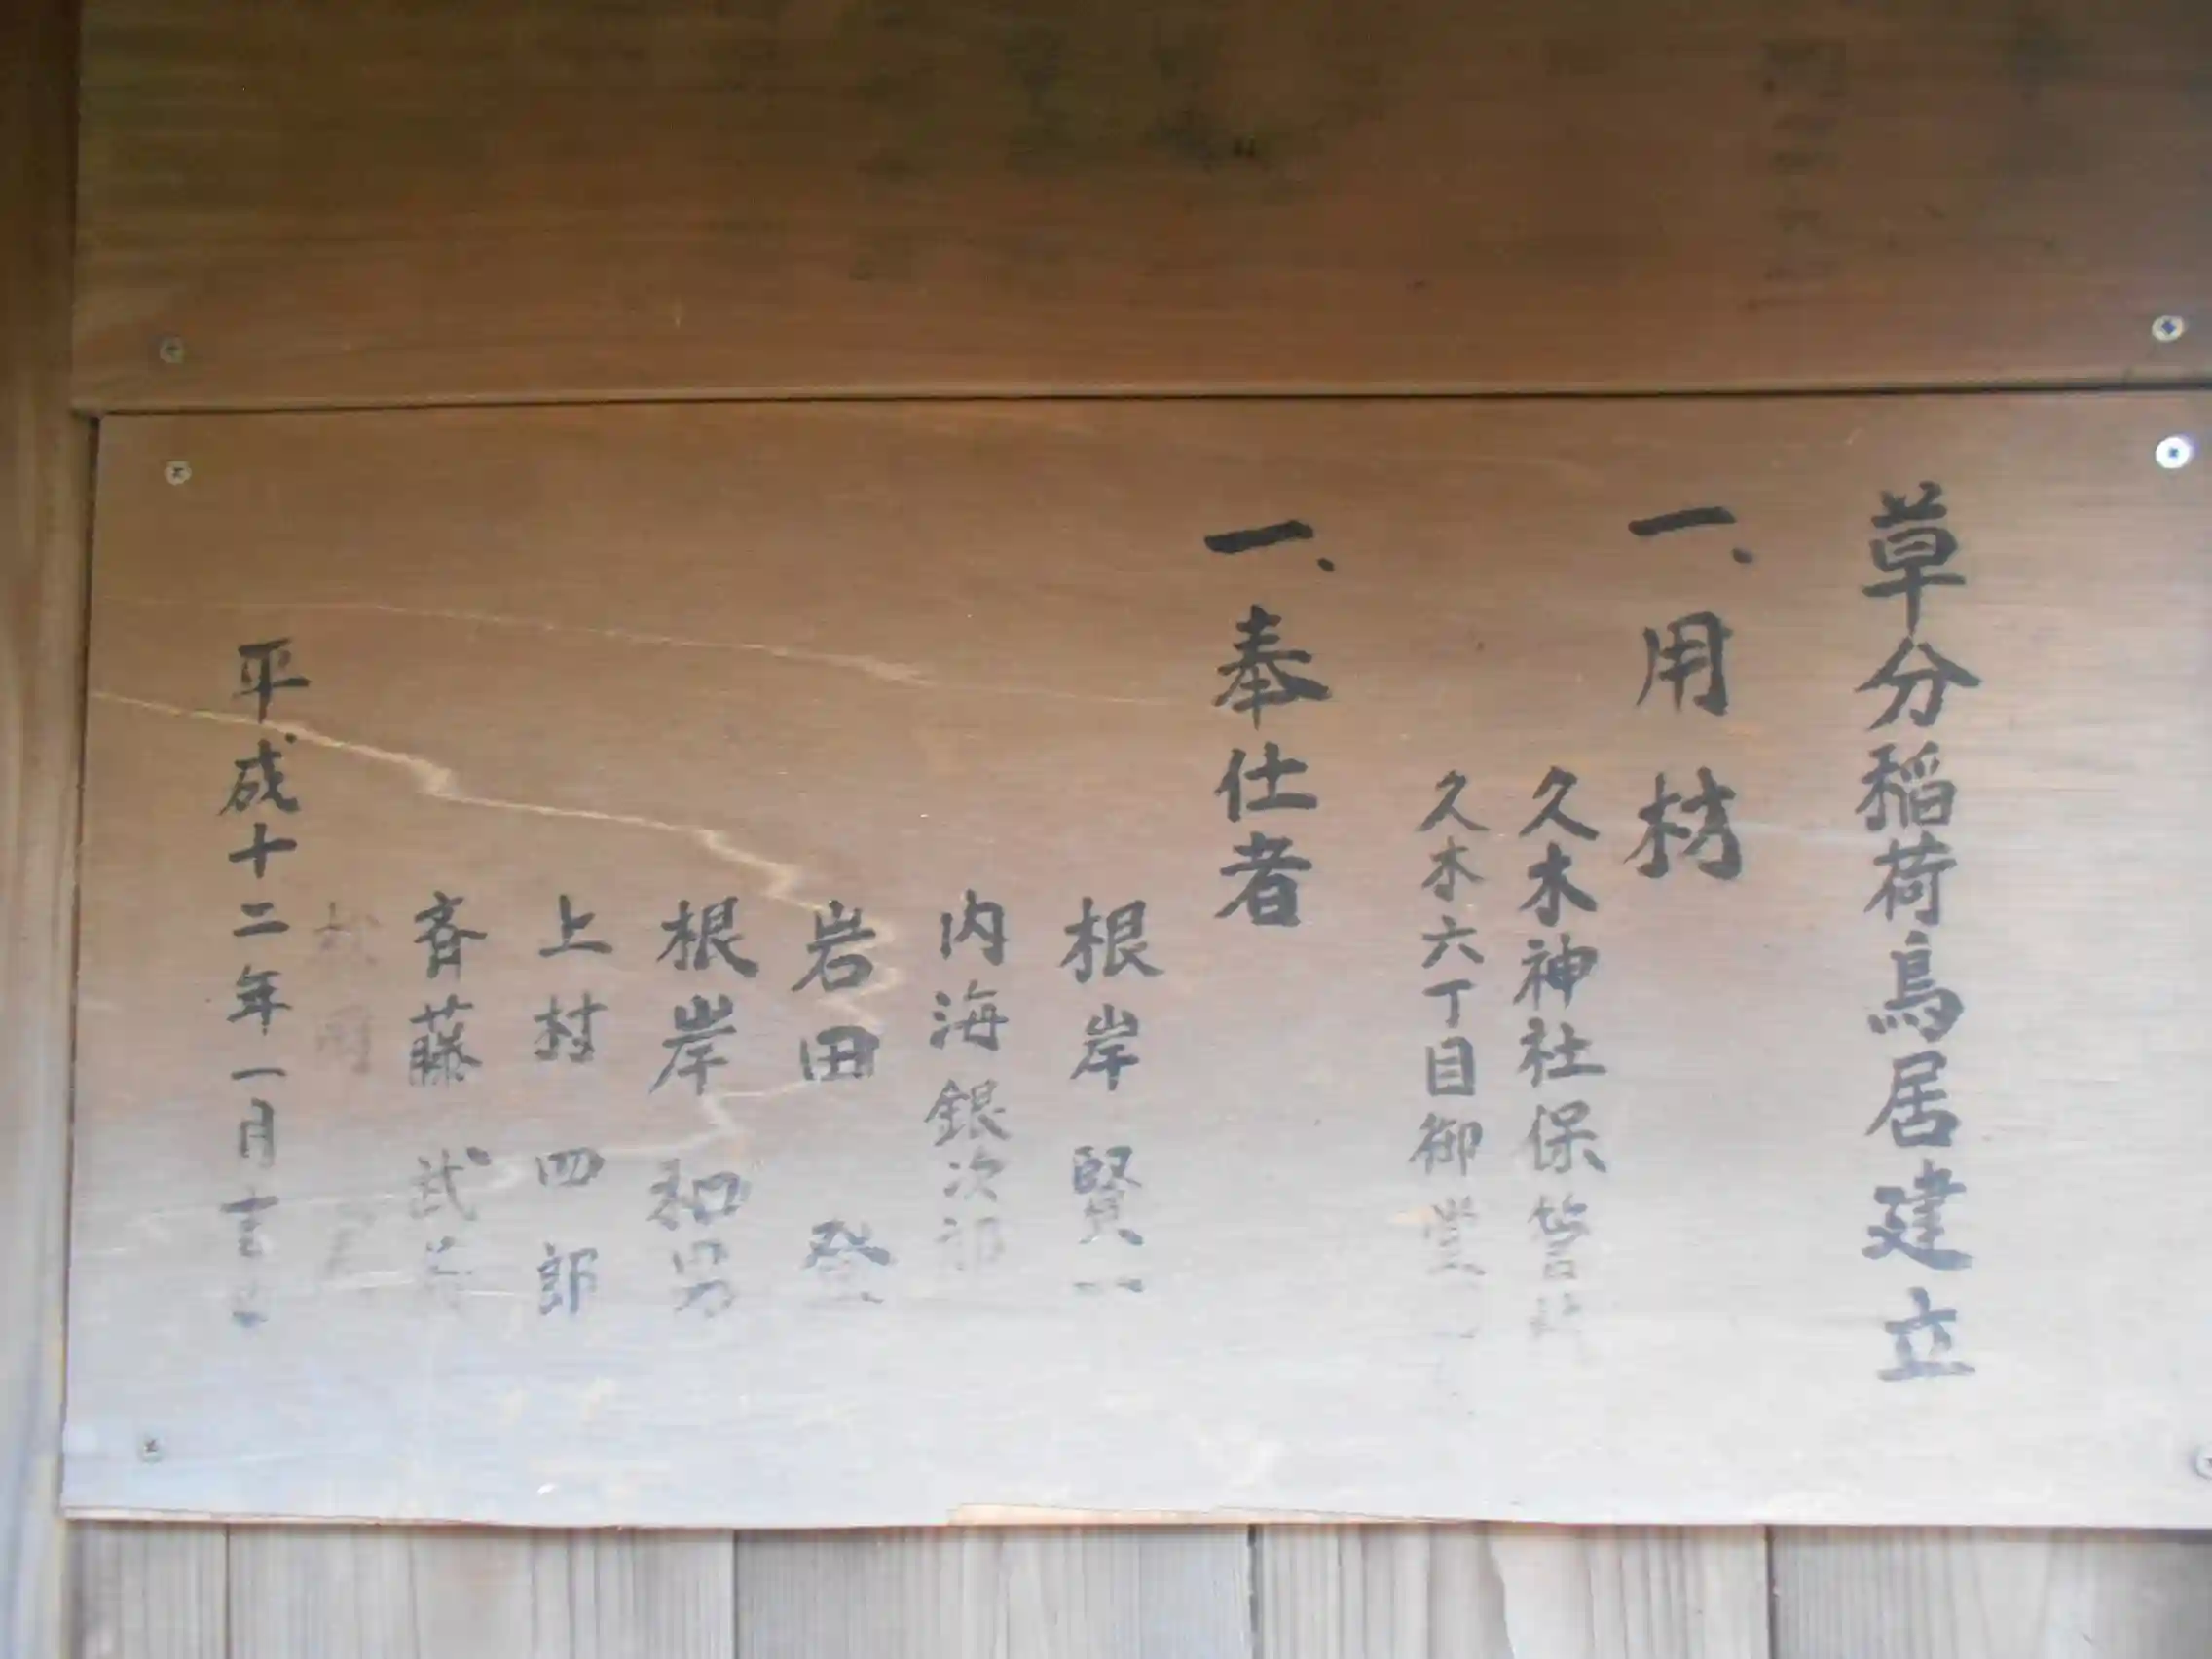 草分稲荷鳥居建立
一、用材
久木神社保管
久木六丁目御堂
一、奉仕者
根岸 賢一
内海銀次郎
岩田 登
根岸 和男
上村 四郎
斉藤 武
松岡
平成十二年一月吉日